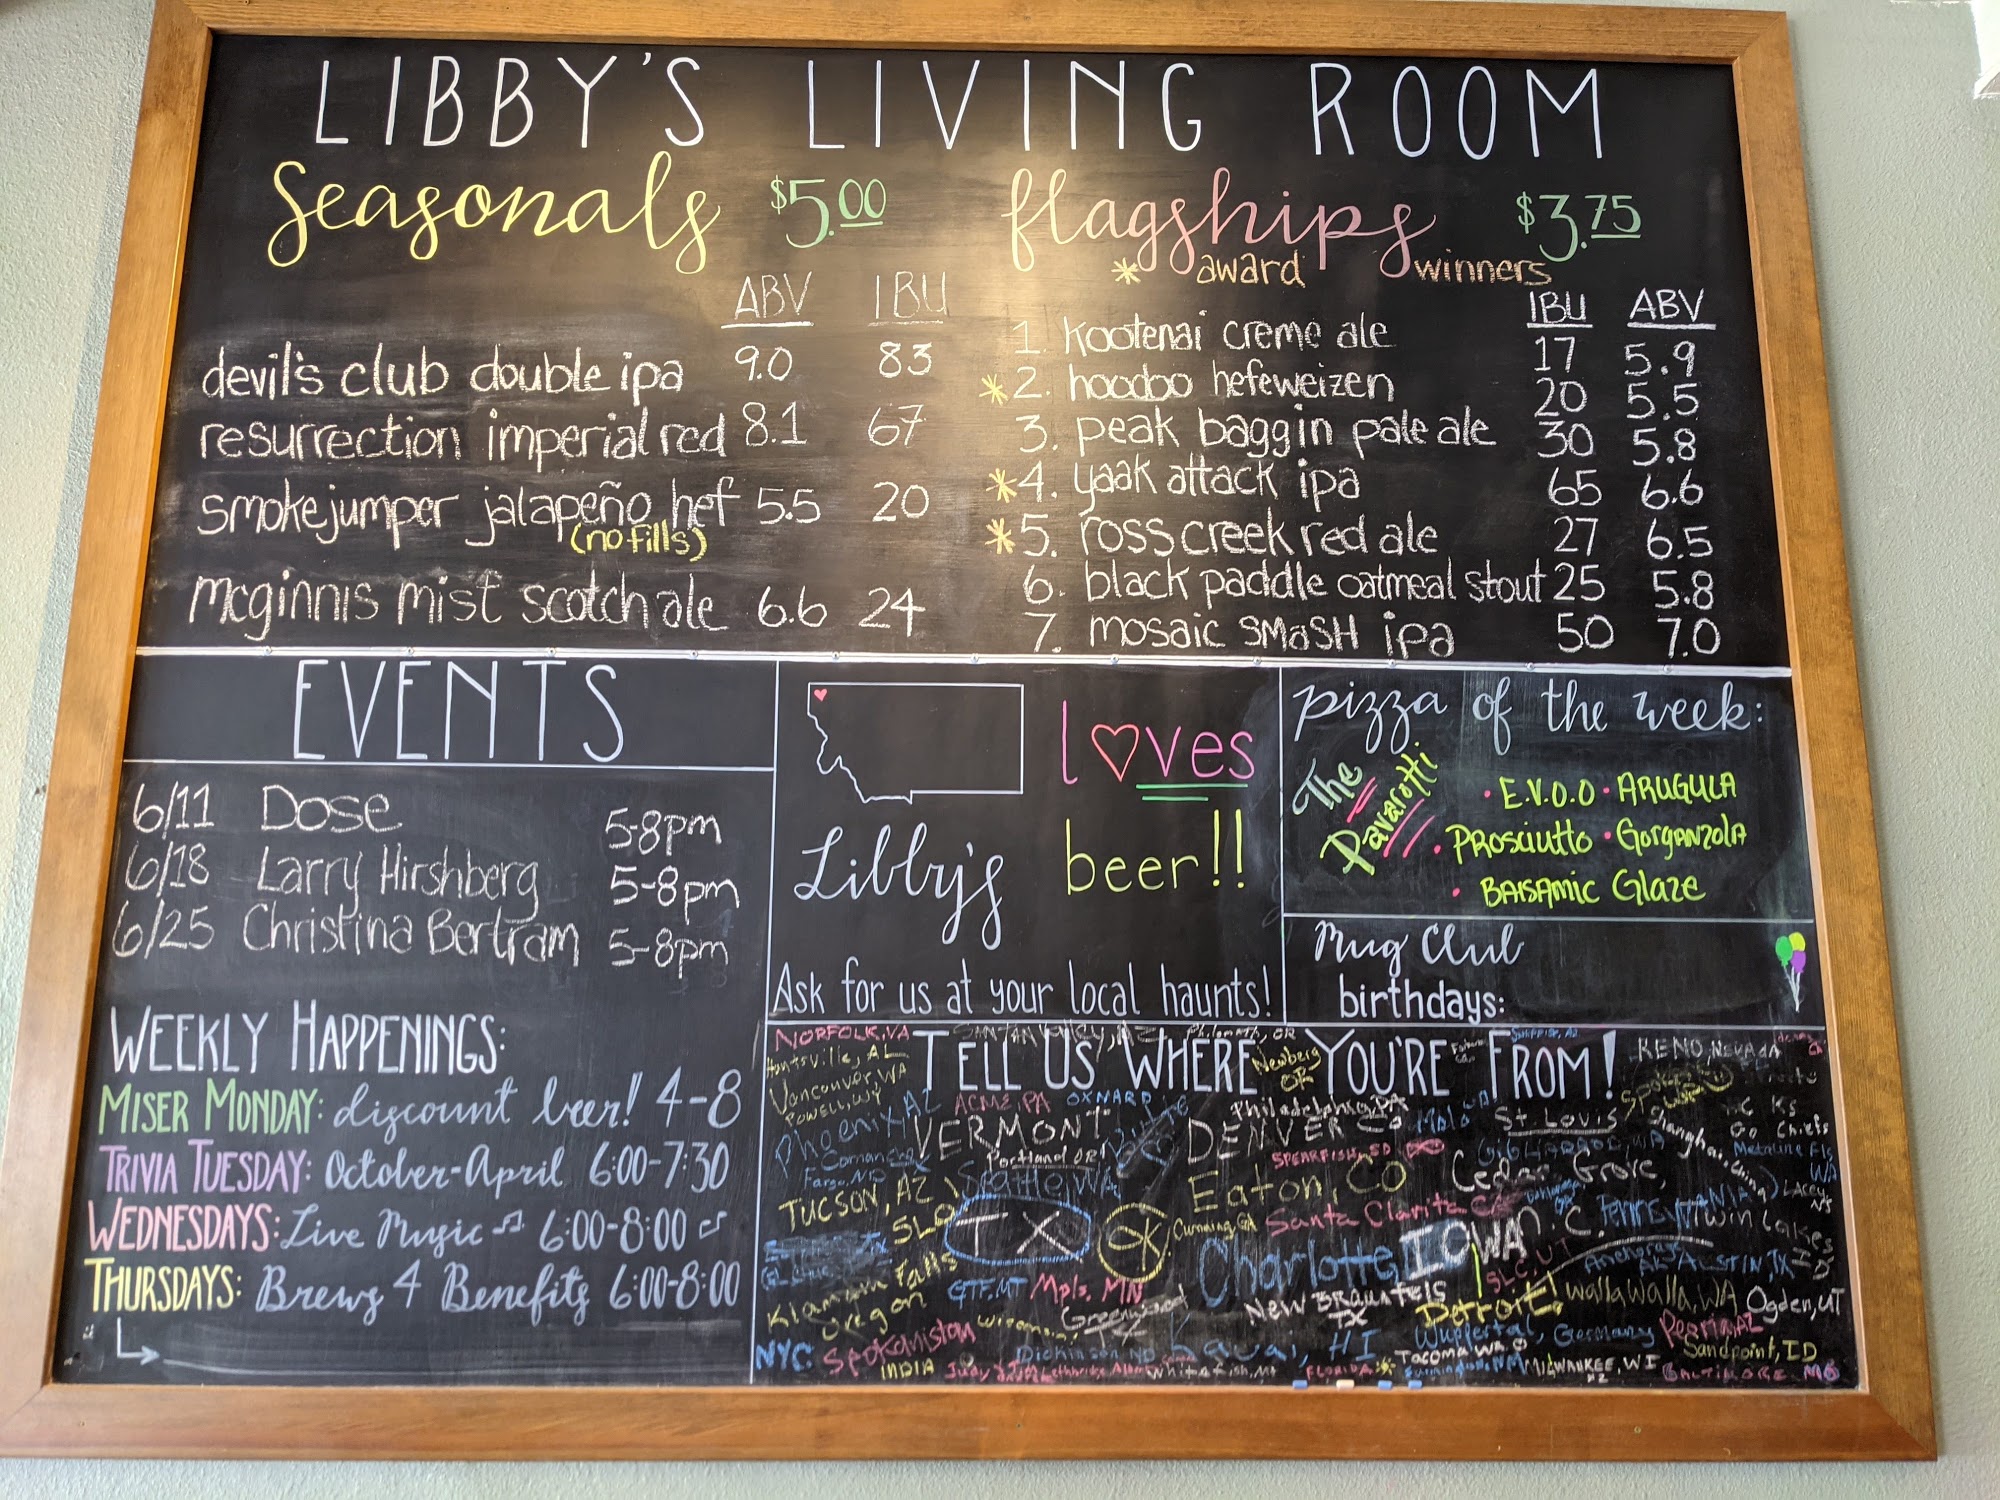 LIBBY'S LIVING ROOM
Seasonals $5.00
ABV IBU
devil's club double ipa 9.0 83
resurrection imperial red 8.1 67
smokejumper jalapeño hef 5.5 20
(no fills)
mcginnis mist scotch ale 6.6 24
flagships $3.75
* award winners
IBU ABV
1. kootenai creme ale 17 5.9
* 2. hoodoo hefeweizen 20 5.5
3. peak baggin pale ale 30 5.8
* 4. yaak attack ipa 65 6.6
* 5. ross creek red ale 27 6.5
6. black paddle oatmeal stout 25 5.8
7. mosaic SMaSH ipa 50 7.0
EVENTS
6/11 Dose 5-8pm
6/18 Larry Hirshberg 5-8pm
6/25 Christina Bertram 5-8pm
WEEKLY HAPPENINGS:
MISER MONDAY: discount beer! 4-8
TRIVIA TUESDAY: October-April 6:00-7:30
WEDNESDAYS: Live Music 6:00-8:00
THURSDAYS: Brews 4 Benefits 6:00-8:00
loves
Libby's beer!!
Ask for us at your local haunts!
pizza of the week:
The Pavarotti
• E.V.O.O • ARUGULA
• PROSCIUTTO • GORGANZOLA
• BALSAMIC GLAZE
Mug Club
birthdays:
NORFOLK, VA
Philomath, OR
TELL US WHERE YOU'RE FROM!
Huntsville, AL
Newberg OR
RENO, NEVADA
Vancouver, WA
POWELL, WY
Phoenix, AZ
ACME, PA
OXNARD
Philadelphia, PA
St. Louis
VERMONT
DENVER CO
KS
Go Chiefs
Shanghai, China
Portland OR
Fargo, ND
Seattle, WA
SPEARFISH, SD
Cedar Grove, N.C.
Metaline Fls WA
TUCSON, AZ
Eaton, CO
SLO
TX
OK
Cumming, GA
Santa Clarita CA
Twin Lakes ID
Charlotte
IOWA
SLC, UT
Anchorage AK
AUSTIN, TX
Klamath Falls Oregon
GTF, MT
Mpls, MN
Greenwood
NEW BRAUNFELS TX
Detroit!
Walla Walla, WA
Ogden, UT
NYC
Spokanistan
Wisconsin
Kauai, HI
Wuppertal, Germany
Peoria, AZ
Sandpoint, ID
INDIA
Dickinson, ND
Whitefish, MT
FLORIDA
Tacoma WA
MILWAUKEE, WI
BALTIMORE, MD